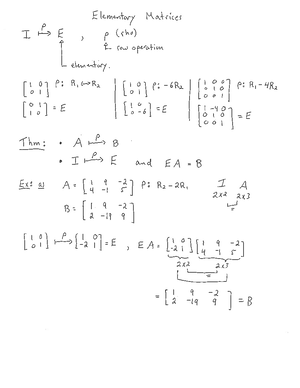 Elementary Matrices
I ρ↦ E , ρ (rho)
row operation
elementary.
[1 0; 0 1] ρ: R₁↔R₂ | [1 0; 0 1] ρ: -6R₂ | [1 0 0; 0 1 0; 0 0 1] ρ: R₁-4R₂
[0 1; 1 0] = E | [1 0; 0 -6] = E | [1 -4 0; 0 1 0; 0 0 1] = E
Thm: • A ρ↦ B
• I ρ↦ E and EA = B
Ex: a) A = [1 9 -2; 4 -1 5] ρ: R₂-2R₁ I A
2x2 2x3
B = [1 9 -2; 2 -19 9] =
[1 0; 0 1] ρ↦ [1 0; -2 1] = E , EA = [1 0; -2 1] [1 9 -2; 4 -1 5]
2x2 2x3
=
= [1 9 -2; 2 -19 9] = B